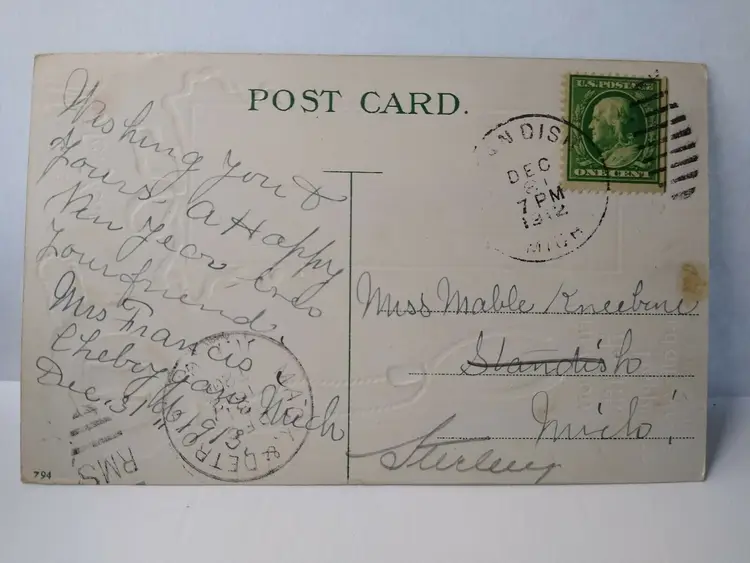 POST CARD.
U.S. POSTAGE
ONE CENT
DIS
DEC
7 PM
1912
MICH
Wishing you &
yours, a Happy
New Year,
your friend,
Mrs Francis
Cheboygan, Mich
Dec, 31
Miss Mable Kneebone
Standish
Mich,
Sterling
DETR
RMS
794